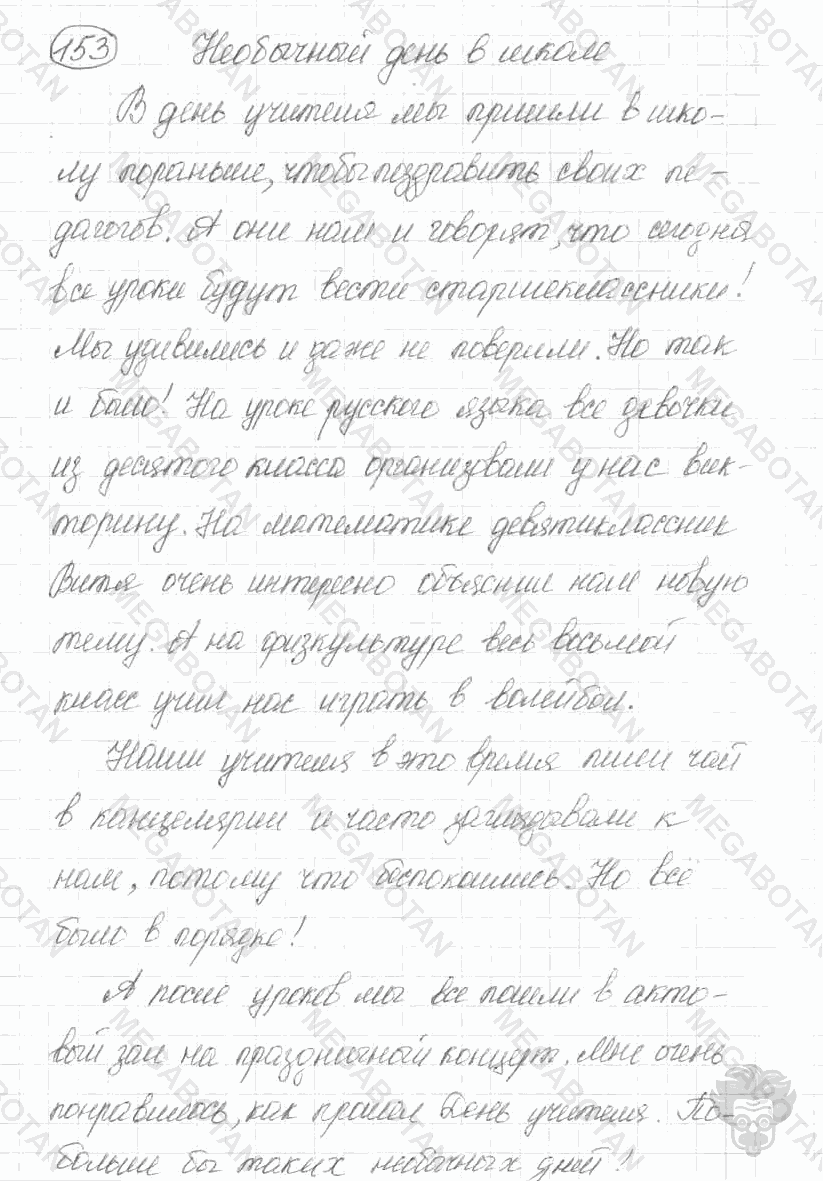 153 Необычный день в школе
В день учителя мы пришли в шко-
лу пораньше, чтобы поздравить своих пе-
дагогов. А они нам и говорят, что сегодня
все уроки будут вести старшеклассники!
Мы удивились и даже не поверили. Но так
и было! На уроке русского языка все девочки
из десятого класса организовали у нас вик-
торину. На математике девятиклассник
Витя очень интересно объяснил нам новую
тему. А на физкультуре весь восьмой
класс учил нас играть в волейбол.
Наши учителя в это время пили чай
в канцелярии и часто заглядывали к
нам, потому что беспокоились. Но всё
было в порядке!
А после уроков мы все пошли в акто-
вый зал на праздничный концерт. Мне очень
понравилось, как прошел День учителя. По-
больше бы таких необычных дней!
MEGABOTAN